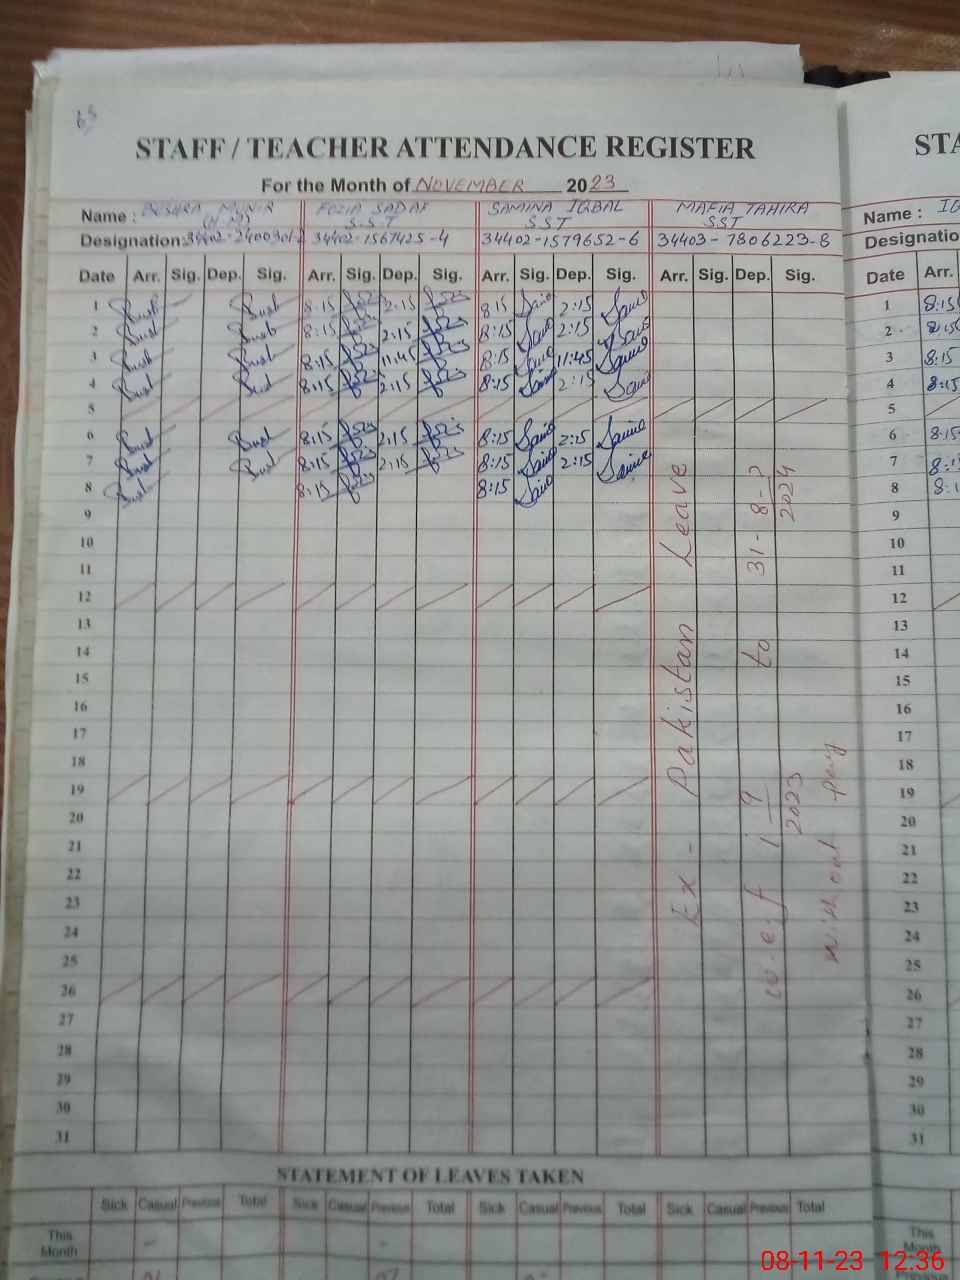 STAFF / TEACHER ATTENDANCE REGISTER STA
For the Month of NOVEMBER 2023
Name : BUSHRA MUNIR FOZIA SADAF SAMINA IQBAL MAFIA TAHIRA Name :
(H.M) S.S.T SST SST
Designation: 34402-1567425-4 34402-1579652-6 34403-7806223-8 Designatio
Date Arr. Sig. Dep. Sig. Arr. Sig. Dep. Sig. Arr. Sig. Dep. Sig. Arr. Sig. Dep. Sig. Date Arr.
1 8:15 2:15 8:15 2:15 1 8:15
2 8:15 2:15 8:15 2:15 2 8:15
3 8:15 11:45 8:15 11:45 3 8:15
4 8:15 2:15 8:15 2:15 4 8:15
5 5
6 8:15 2:15 8:15 2:15 6 8:15
7 8:15 2:15 8:15 2:15 7 8:1
8 8:15 8:15 8 8:1
9 9
10 10
11 11
12 12
13 13
14 14
15 15
16 16
17 17
18 18
19 19
20 20
21 21
22 22
23 23
24 24
25 25
26 26
27 27
28 28
29 29
30 30
31 31
Ex - Pakistan Leave
w.e.f 1-9-2023 to 31-8-2024
with out pay
STATEMENT OF LEAVES TAKEN
Sick Casual Previous Total Sick Casual Previous Total Sick Casual Previous Total Sick Casual Previous Total
This Month This Month
08-11-23 12:36